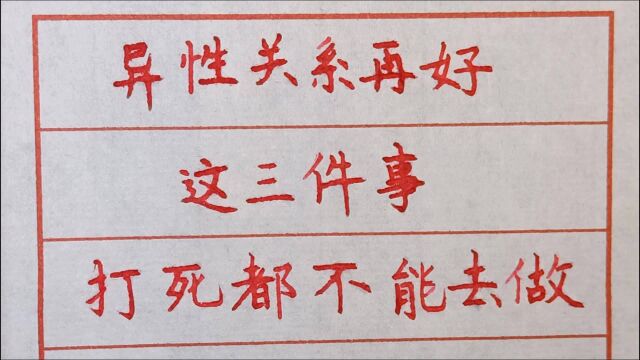 异性关系再好
这三件事
打死都不能去做